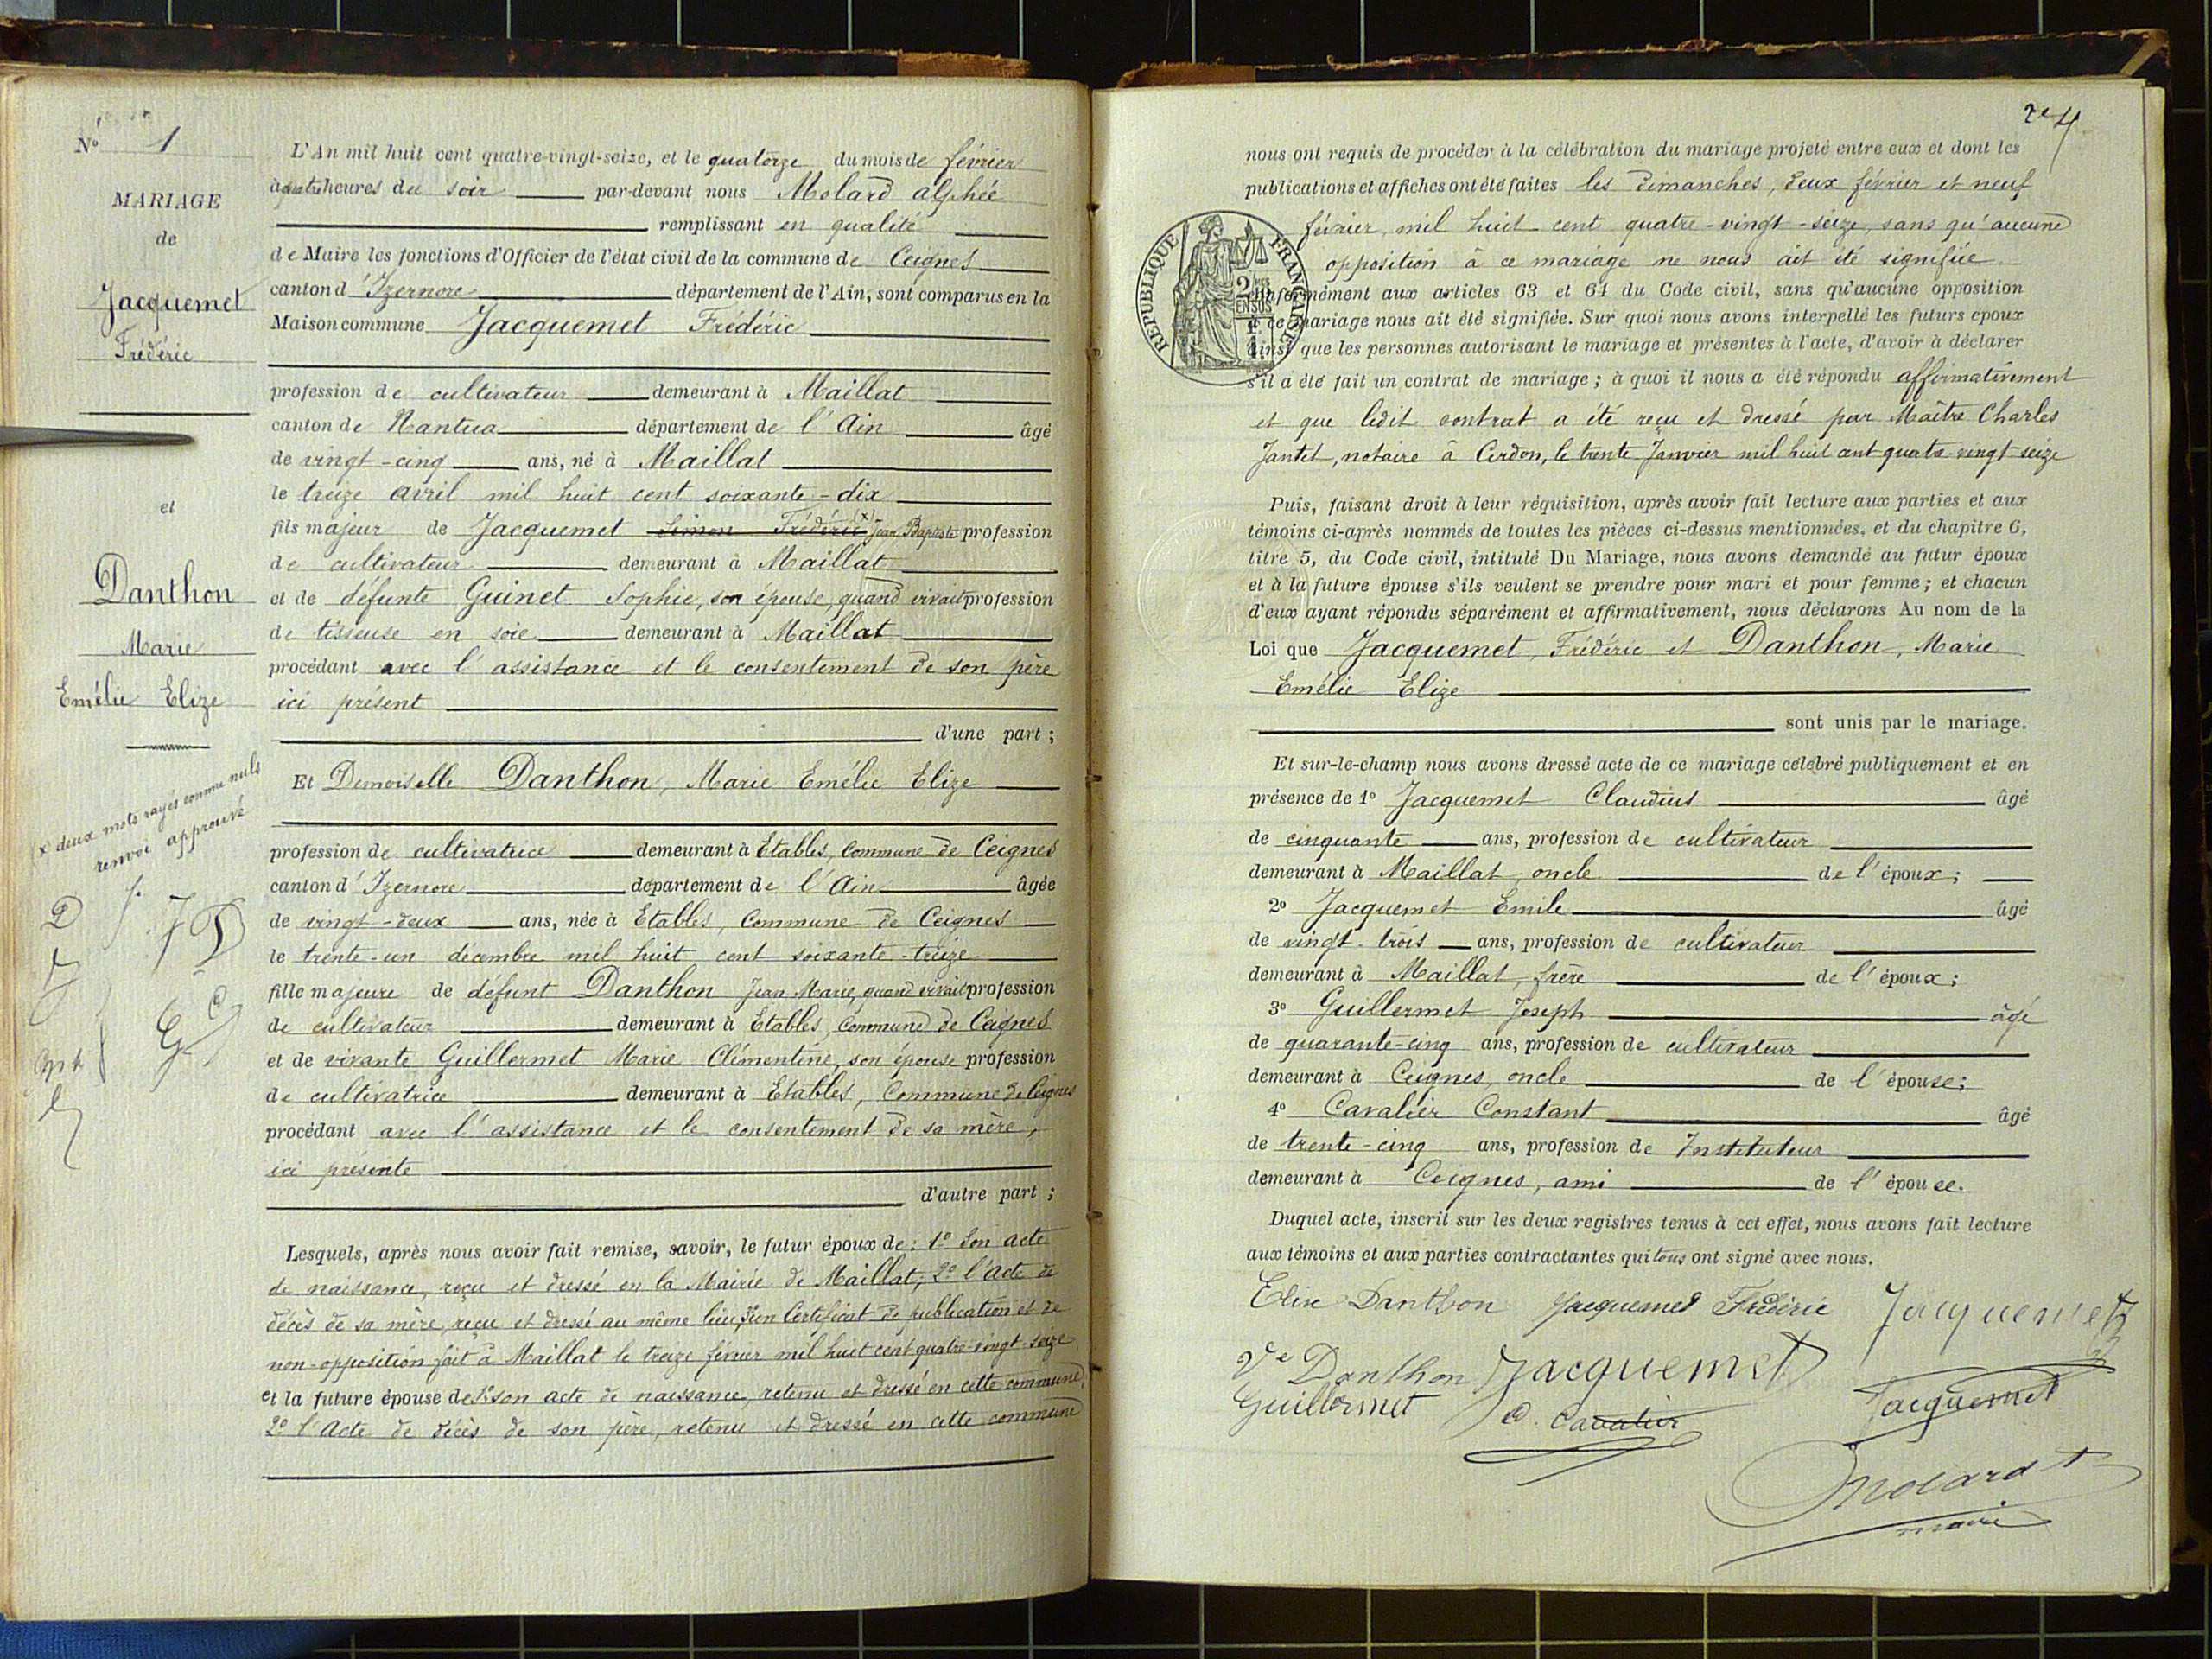 No 1
MARIAGE
de
Jacquemet
Frédéric
et
Danthon
Marie
Emélie Elize
x deux mots rayés comme nuls
renvoi approuvé
L'An mil huit cent quatre-vingt-seize, et le quatorze du mois de février
à quatre heures du soir par-devant nous Molard alphée
remplissant en qualité
de Maire les fonctions d'Officier de l'état civil de la commune de Ceignes
canton d'Izernore département de l'Ain, sont comparus en la
Maison commune Jacquemet Frédéric
profession de cultivateur demeurant à Maillat
canton de Nantua département de l'Ain âgé
de vingt-cinq ans, né à Maillat
le treize avril mil huit cent soixante-dix
fils majeur de Jacquemet Simon Frédéric (x) Jean Baptiste profession
de cultivateur demeurant à Maillat
et de défunte Guinet Sophie, son épouse, quand vivait profession
de tisseuse en soie demeurant à Maillat
procédant avec l'assistance et le consentement de son père
ici présent
d'une part ;
Et Demoiselle Danthon, Marie Emélie Elize
profession de cultivatrice demeurant à Etables, Commune de Ceignes
canton d'Izernore département de l'Ain âgée
de vingt-deux ans, née à Etables, Commune de Ceignes
le trente-un décembre mil huit cent soixante-treize
fille majeure de défunt Danthon Jean Marie, quand vivait profession
de cultivateur demeurant à Etables, Commune de Ceignes
et de vivante Guillermet Marie Clémentine, son épouse profession
de cultivatrice demeurant à Etables, Commune de Ceignes
procédant avec l'assistance et le consentement de sa mère,
ici présente
d'autre part ;
Lesquels, après nous avoir fait remise, savoir, le futur époux de : 1º Son acte
de naissance, reçu et dressé en la Mairie de Maillat; 2º l'Acte de
décès de sa mère, reçu et dressé au même lieu, 3º un Certificat de publication et de
non-opposition fait à Maillat le treize février mil huit cent quatre-vingt-seize
et la future épouse de 1º son acte de naissance, retenu et dressé en cette commune,
2º l'Acte de décès de son père, retenu et dressé en cette commune
nous ont requis de procéder à la célébration du mariage projeté entre eux et dont les
publications et affiches ont été faites les dimanches, deux février et neuf
février, mil huit cent quatre-vingt-seize, sans qu'aucune
opposition à ce mariage ne nous ait été signifiée
conformément aux articles 63 et 64 du Code civil, sans qu'aucune opposition
à ce mariage nous ait été signifiée. Sur quoi nous avons interpellé les futurs époux
ainsi que les personnes autorisant le mariage et présentes à l'acte, d'avoir à déclarer
s'il a été fait un contrat de mariage ; à quoi il nous a été répondu affirmativement
et que ledit contrat a été reçu et dressé par Maître Charles
Jantet, notaire à Cerdon, le trente Janvier mil huit cent quatre vingt-seize
REPUBLIQUE FRANÇAISE
Puis, faisant droit à leur réquisition, après avoir fait lecture aux parties et aux
témoins ci-après nommés de toutes les pièces ci-dessus mentionnées, et du chapitre 6,
titre 5, du Code civil, intitulé Du Mariage, nous avons demandé au futur époux
et à la future épouse s'ils veulent se prendre pour mari et pour femme ; et chacun
d'eux ayant répondu séparément et affirmativement, nous déclarons Au nom de la
Loi que Jacquemet, Frédéric et Danthon, Marie
Emélie Elize
sont unis par le mariage.
Et sur-le-champ nous avons dressé acte de ce mariage célébré publiquement et en
présence de 1º Jacquemet Claudius âgé
de cinquante ans, profession de cultivateur
demeurant à Maillat, oncle de l'époux ;
2º Jacquemet Emile âgé
de vingt-trois ans, profession de cultivateur
demeurant à Maillat, frère de l'époux ;
3º Guillermet Joseph âgé
de quarante-cinq ans, profession de cultivateur
demeurant à Ceignes, oncle de l'épouse ;
4º Cavalier Constant âgé
de trente-cinq ans, profession de Instituteur
demeurant à Ceignes, ami de l'épouse.
Duquel acte, inscrit sur les deux registres tenus à cet effet, nous avons fait lecture
aux témoins et aux parties contractantes qui tous ont signé avec nous.
Elise Danthon Jacquemet Frédéric Jacquemet
Ve Danthon Jacquemet
Guillermet C. Cavalier Jacquemet
Molard
maire